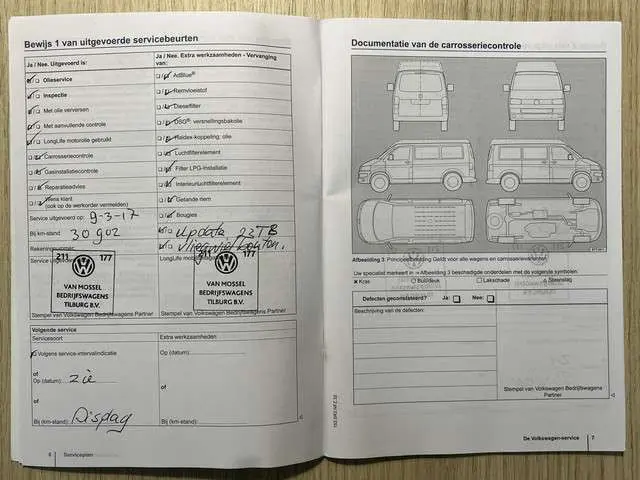 Bewijs 1 van uitgevoerde servicebeurten
Ja / Nee. Uitgevoerd is:
Olieservice
Inspectie
Met olie verversen
Met aanvullende controle
LongLife motorolie gebruikt
Carrosseriecontrole
Gasinstallatiecontrole
Reparatieadvies
Wens klant
(ook op de werkorder vermelden)
Service uitgevoerd op: 9-3-17
Bij km-stand: 30902
Rekeningnummer:
Service uitgevoerd
211 177
VAN MOSSEL
BEDRIJFSWAGENS
TILBURG B.V.
Stempel van Volkswagen Bedrijfswagens Partner
Ja / Nee. Extra werkzaamheden - Vervanging
van:
AdBlue®
Remvloeistof
Dieselfilter
DSG®: versnellingsbakolie
Haldex-koppeling: olie
Luchtfilterelement
Filter LPG-installatie
Interieurluchtfilterelement
Getande riem
Bougies
update 23TB
LongLife motorolie
211 177
VAN MOSSEL
BEDRIJFSWAGENS
TILBURG B.V.
Stempel van Volkswagen Bedrijfswagens Partner
Volgende service
Servicesoort
Extra werkzaamheden
Volgens service-intervalindicatie
Op (datum):
of
of
Op (datum): zie
of
of
Bij (km-stand): Display
Bij (km-stand):
6 Serviceplan
Documentatie van de carrosseriecontrole
Afbeelding 3: Principeafbeelding Geldt voor alle wagens en carrosserievarianten.
Uw specialist markeert in ⇒ Afbeelding 3 beschadigde onderdelen met de volgende symbolen.
× Kras ○ Buil/deuk □ Lakschade △ Steenslag
Defecten geconstateerd? Ja: □ Nee: □
Beschrijving van de defecten:
Stempel van Volkswagen Bedrijfswagens
Partner
De Volkswagen-service 7